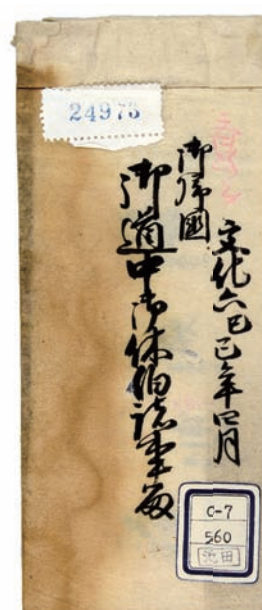 24975
文化六己巳年四月
御帰國
御道中御休泊諸事留
C-7
560
池田